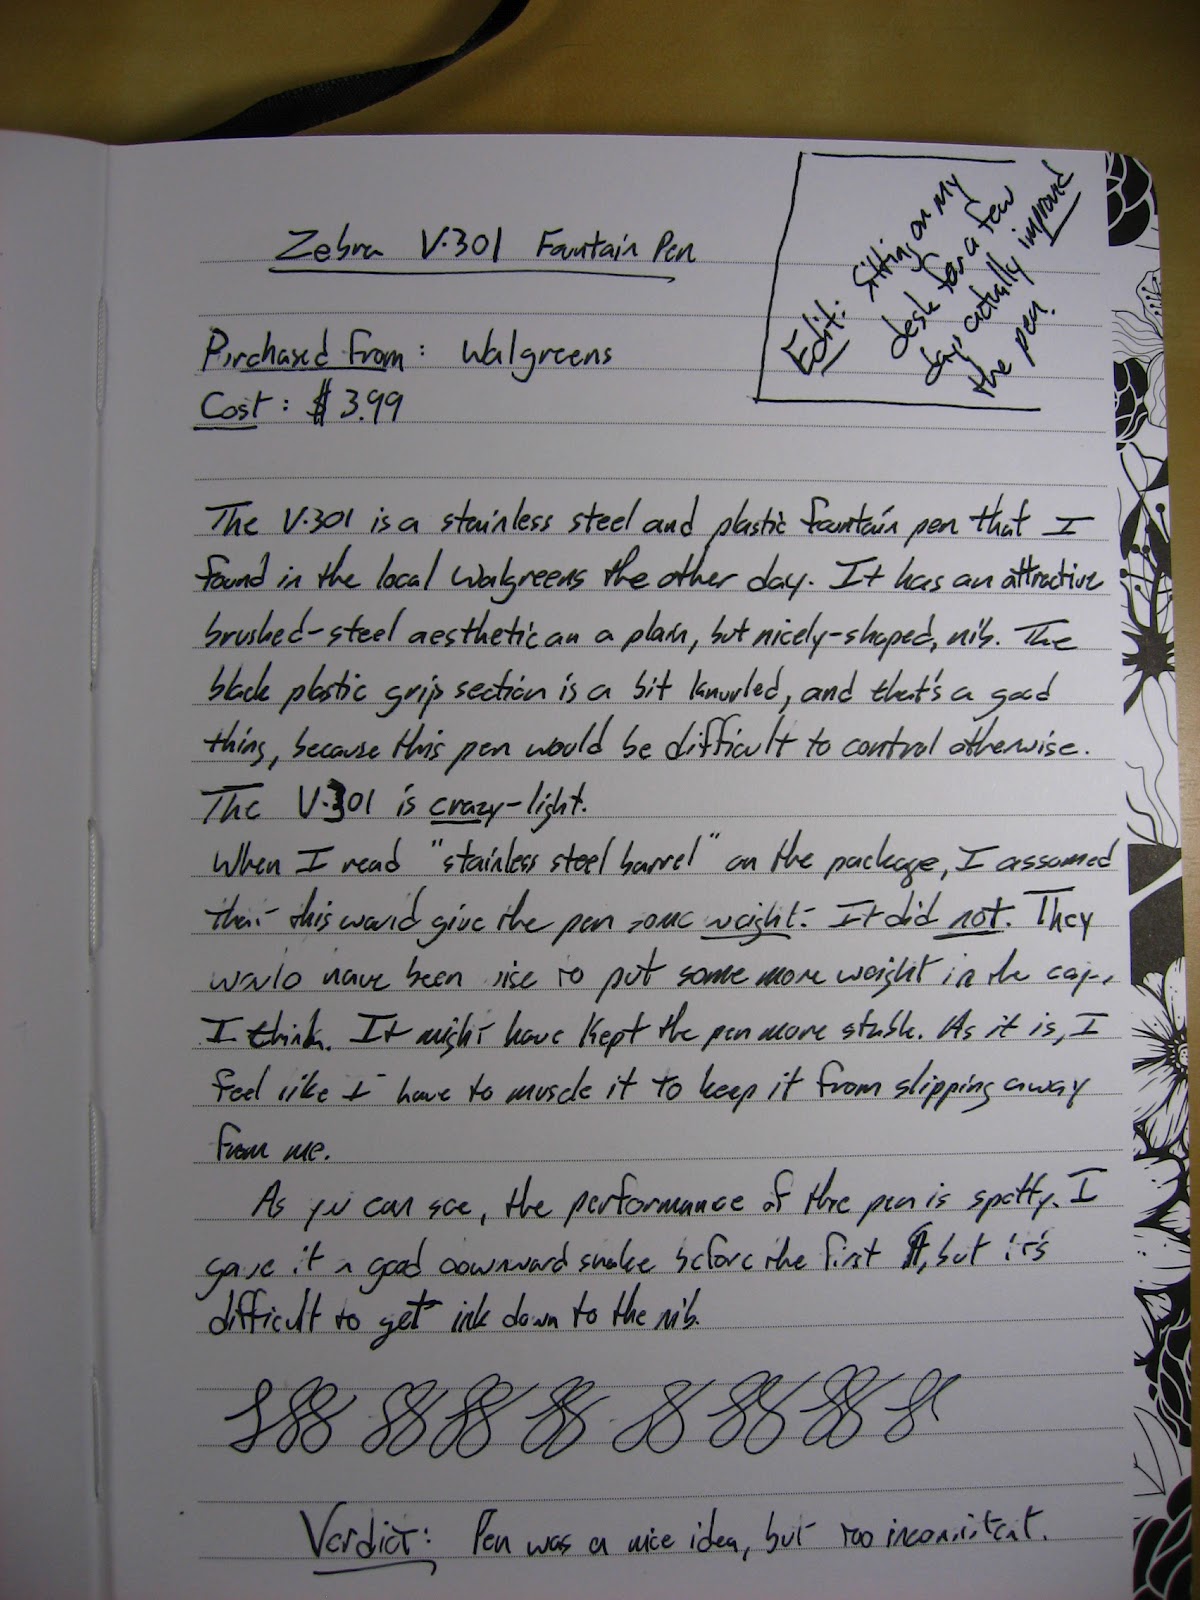 Zebra V-301 Fountain Pen
Edit: Sitting on my
desk for a few
days actually improved
the pen.
Purchased From: Walgreens
Cost: $3.99
The V-301 is a stainless steel and plastic fountain pen that I
found in the local Walgreens the other day. It has an attractive
brushed-steel aesthetic an a plain, but nicely-shaped, nib. The
black plastic grip section is a bit knurled, and that's a good
thing, because this pen would be difficult to control otherwise.
The V-301 is crazy-light.
When I read "stainless steel barrel" on the package, I assumed
that this would give the pen some weight. It did not. They
would have been wise to put some more weight in the cap,
I think. It might have kept the pen more stable. As it is, I
feel like I have to muscle it to keep it from slipping away
from me.
As you can see, the performance of the pen is spotty. I
gave it a good downward shake before the first ¶, but it's
difficult to get ink down to the nib.
Verdict: Pen was a nice idea, but too inconsistent.